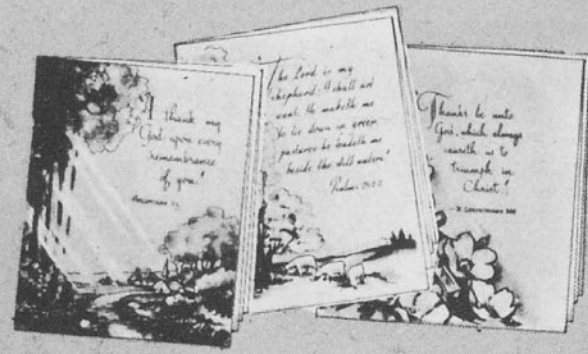 I thank my
God upon every
remembrance
of you!
The Lord is my
shepherd; I shall not
want. He maketh me
to lie down in green
pastures he leadeth me
beside the still waters!
Psalms
Thanks be unto
God, which always
causeth us to
triumph in
Christ!